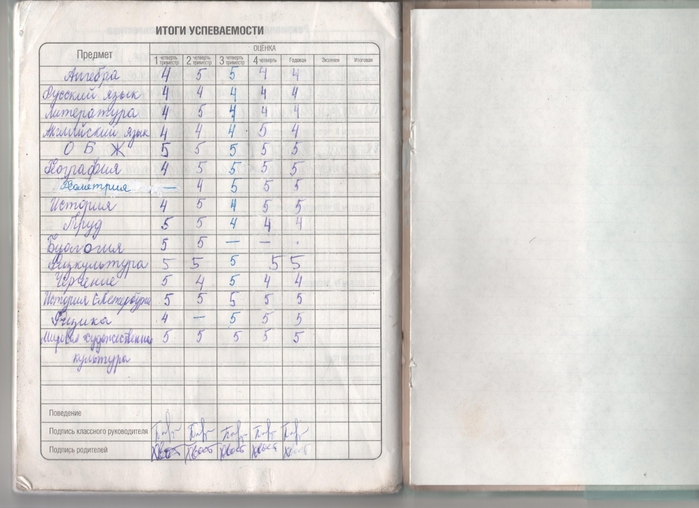 ИТОГИ УСПЕВАЕМОСТИ
Предмет ОЦЕНКА
1 четверть триместр 2 четверть триместр 3 четверть триместр 4 четверть Годовая Экзамен Итоговая
Алгебра 4 5 5 4 4
Русский язык 4 4 4 4 4
Литература 4 5 4 4 4
Английский язык 4 4 4 5 4
ОБЖ 5 5 5 5 5
География 4 5 5 5 5
Геометрия — 4 5 5 5
История 4 5 4 5 5
Труд 5 5 4 4 4
Биология 5 5 — —
Физкультура 5 5 5 5 5
Черчение 5 4 5 4 4
История С-Петербурга 5 5 5 5 5
Физика 4 — 5 5 5
Мировая художественная 5 5 5 5 5
культура
Поведение
Подпись классного руководителя
Подпись родителей